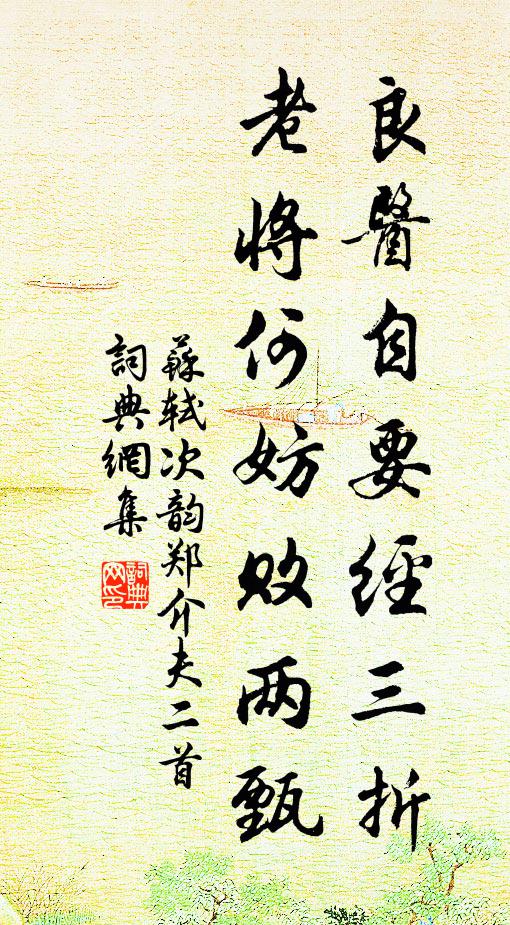 良醫自要經三折
老將何妨敗两甄
蘇軾次韵郑介夫二首
詞典網集
詞典网印